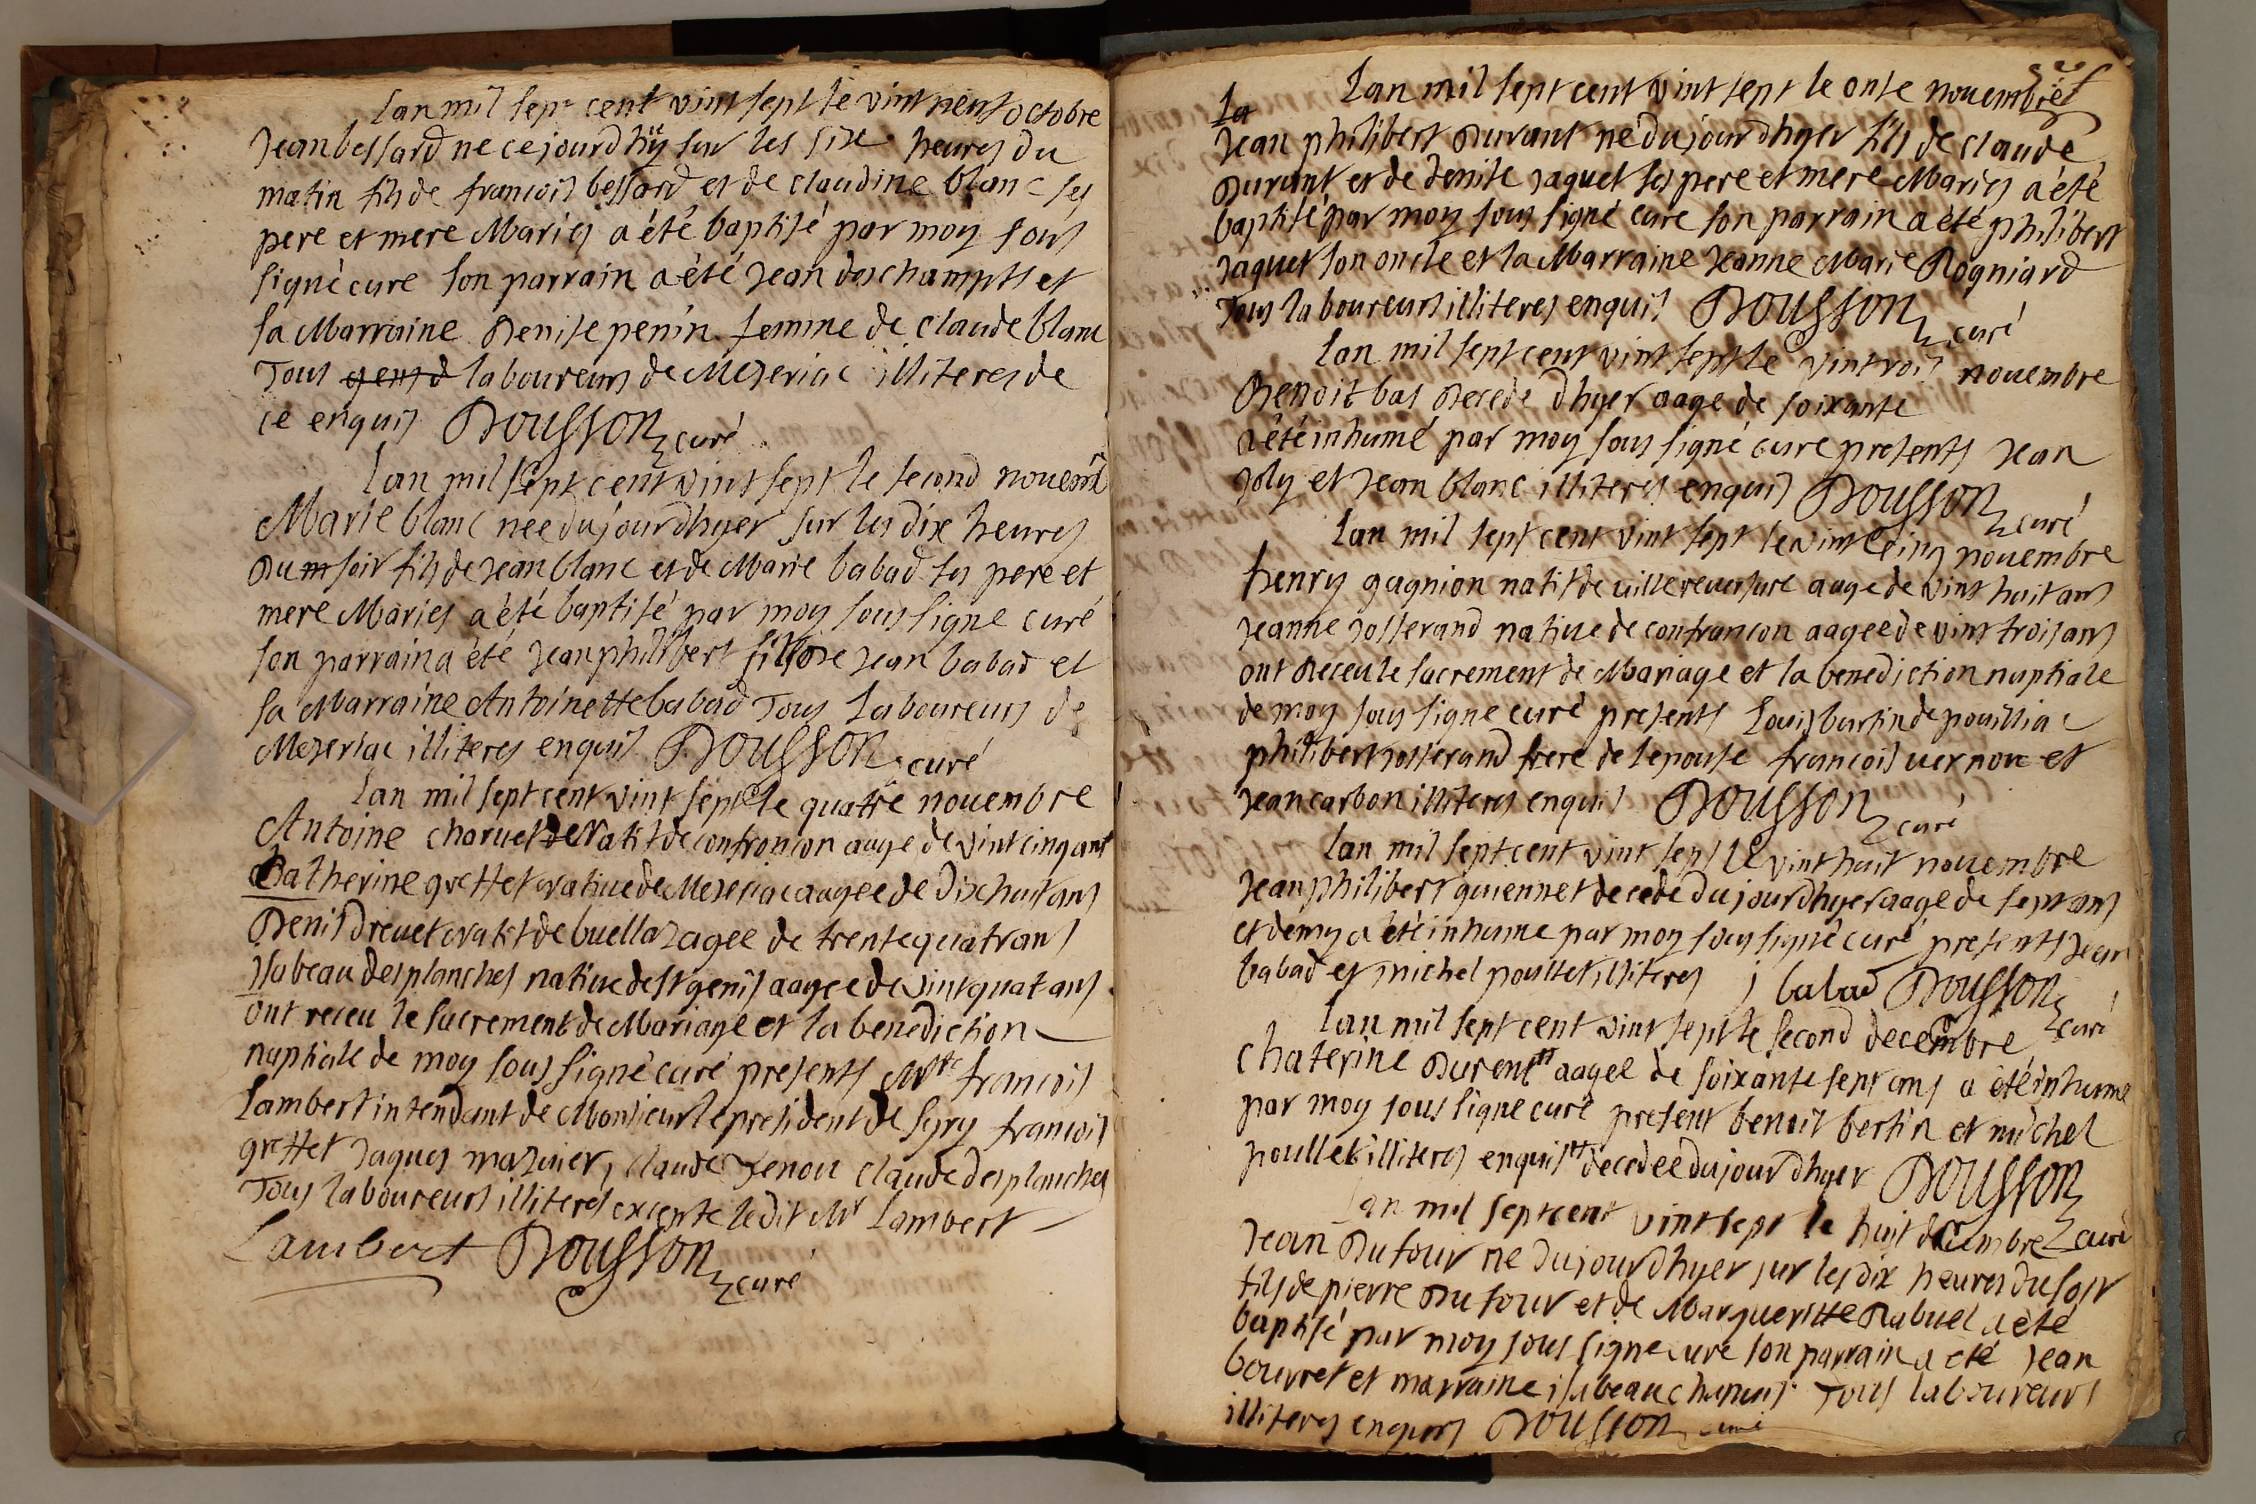 Lan mil sept cent vint sept le vint neuf octobre
Jean bessard ne ce jourdhuy sur les six heures du
matin fils de francois bessard et de claudine blanc ses
pere et mere Mariés a été baptisé par moy sous
signé curé son parrain a été Jean deschampts et
sa Marraine Denise penin femme de claude blanc
Tous laboureurs de Mezeriac illiteres de
ce enquis Dousson curé
Lan mil sept cent vint sept le second novemb
Marie blanc nee dujourdhyer sur les dix heures
Du soir fils de Jean blanc et de Marie babad ses pere et
mere Mariés a été baptisé par moy sous signe curé
son parrain a été Jean philibert fils de Jean babad et
sa Marraine Antoinette babad Tous Laboureurs de
Mezeriac illiteres enquis Dousson curé
Lan mil sept cent vint sept le quatre nouembre
Antoine charuet natif de confrancon aage de vint cinq ans
Catherine grettet natiue de Mezeriac aagee de dix huit ans
Denis dreuet natif de buellaz agee de trente quatr ans
Isabeau desplanches natiue de st genis aagee de vint quat ans
ont receu le sacrement de Mariage et la benediction
nuptiale de moy sous signé curé presents Mtre francois
Lambert intendant de Monsieur le president de seyry francois
grettet Jaques mazuier, claude Jenou claude desplanches
Tous laboureurs illiteres excepte ledit Mr Lambert
Lambert Dousson curé
La
Lan mil sept cent vint sept le onse nouembre
Jean philibert Durant né dujourdhyer fils de claude
Durant et de denise Jaquet ses pere et mere Mariés a été
baptisé par moy sous signé curé son parrain a été philibert
Jaquet son oncle et la Marraine Jeanne Marie Rogniard
Tous laboureurs illiteres enquis Dousson curé
Lan mil sept cent vint sept le vintrois nouembre
Benoit bas Decede dhyer aage de soixante
a été inhumé par moy sous signé curé presents Jean
Joly et Jean blanc illiteres enquis Dousson curé
Lan mil sept cent vint sept le vint cinq nouembre
henry gagnion natif de villereuersure aage de vint huit ans
Jeanne Josserand natiue de confrancon aagee de vint trois ans
ont Receu le sacrement de Mariage et la benediction nuptiale
de moy sous signe curé presents Louis burtin de pouillia c
philibert Josserand frere de lepouse francois uernou et
Jean carbon illiteres enquis Dousson curé
Lan mil sept cent vint sept le vint huit nouembre
Jean philibert guiennet decede dujourdhyer aage de sept ans
et demy a été inhume par moy sous signé curé presents Jean
babad et michel poullet illiteres j babad Dousson curé
Lan mil sept cent vint sept le second decembre
Chaterine Durent aagee de soixante sept ans a été inhume
par moy sous signe curé present benoit bertin et michel
poullet illiteres enquis decedee dujourdhyer Dousson curé
Lan mil sept cent vint sept le huit decembre
Jean Dufour ne dujourdhyer sur les dix heures du soir
fils de pierre Dufour et de Margueritte Rabuel a été
baptisé par moy sous signe curé son parrain a eté Jean
bouvret et marraine isabeau chanuis Tous laboureurs
illiteres enquis Dousson curé